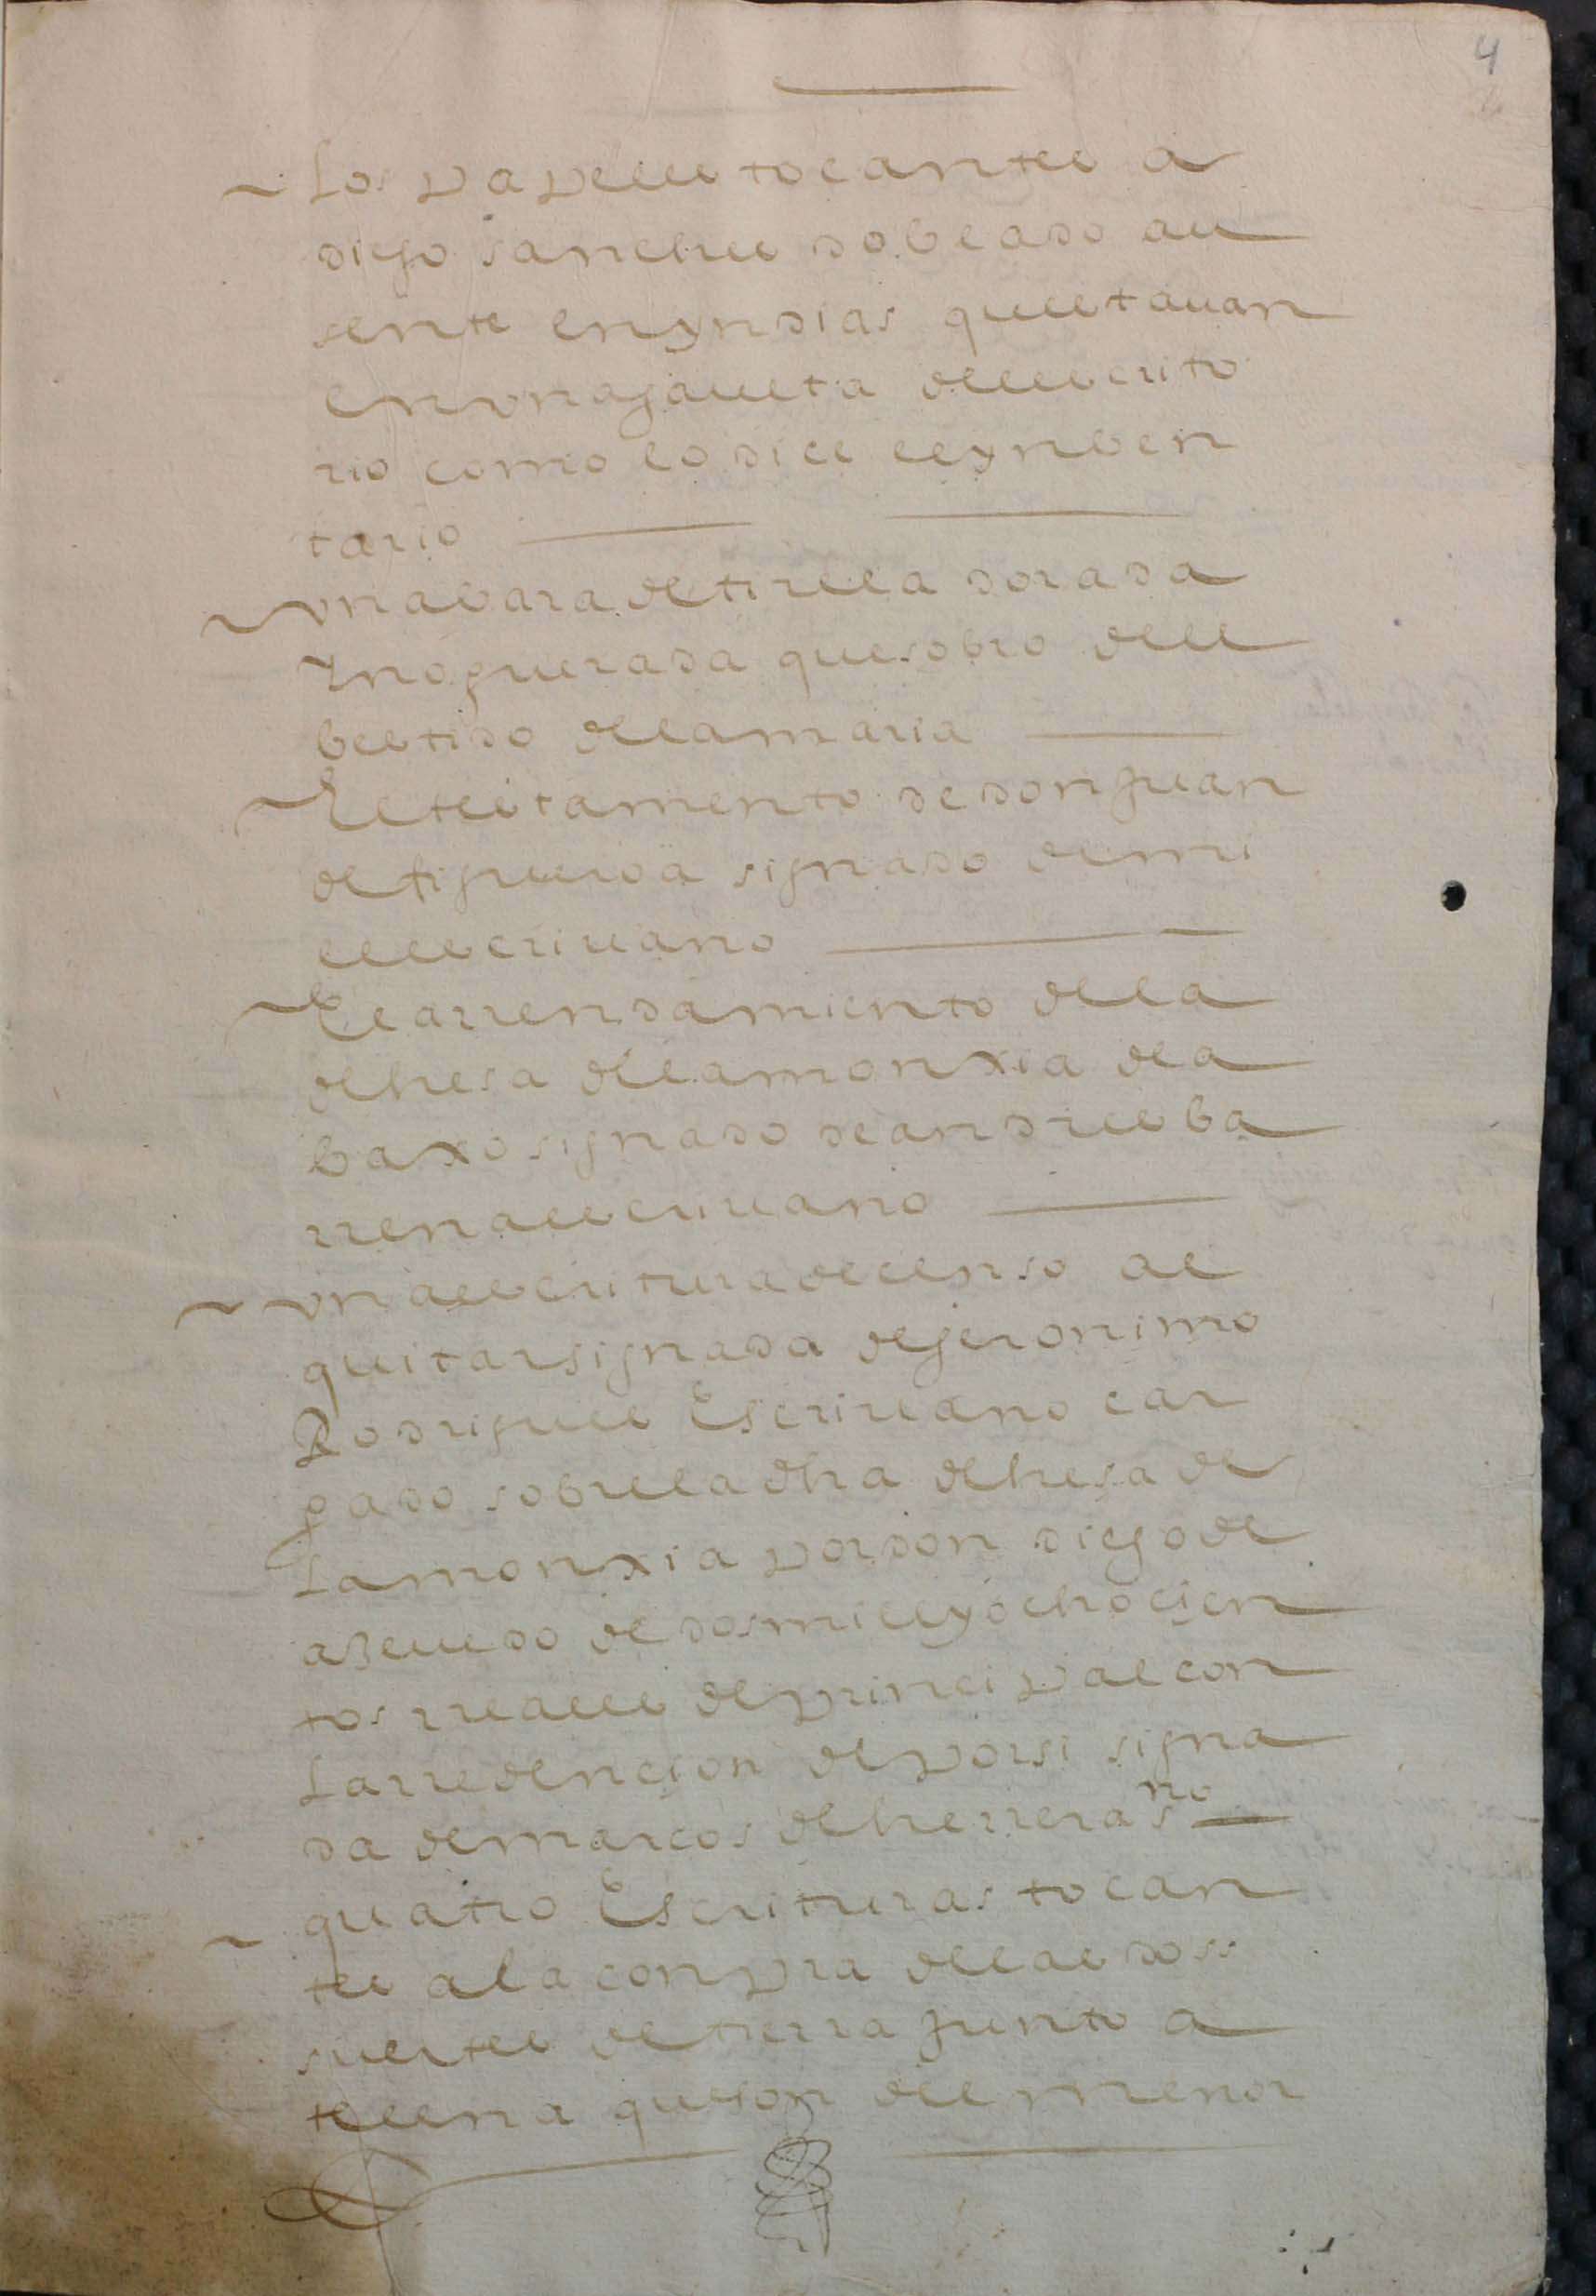 4
Los papeles tocantes a
diego sanches dobeado au
sente en yndias questauan
en vna gaueta del escrito
rio como lo dice el ynben
tario
vna bara de tirela dorada
y noguerada que sobro del
bestido de la maria
El testamento de don juan
de figueroa signado de mi
el escriuano
El arrendamiento de la
dehesa de la monxia de a
baxo signado de andres ba
rrena escriuano
vna escritura de censo al
quitar signada de jeronimo
Rodrigues Escriuano car
gado sobre la dha dehesa de
La monxia por don diego de
azeuedo de dos mil y ochocien
tos rreales de principal con
La rredencion de por si signa
da de marcos de herrera sno
quatro Escrituras tocan
tes a la conpra de las dos
suertes de tierra junto a
que son del menor